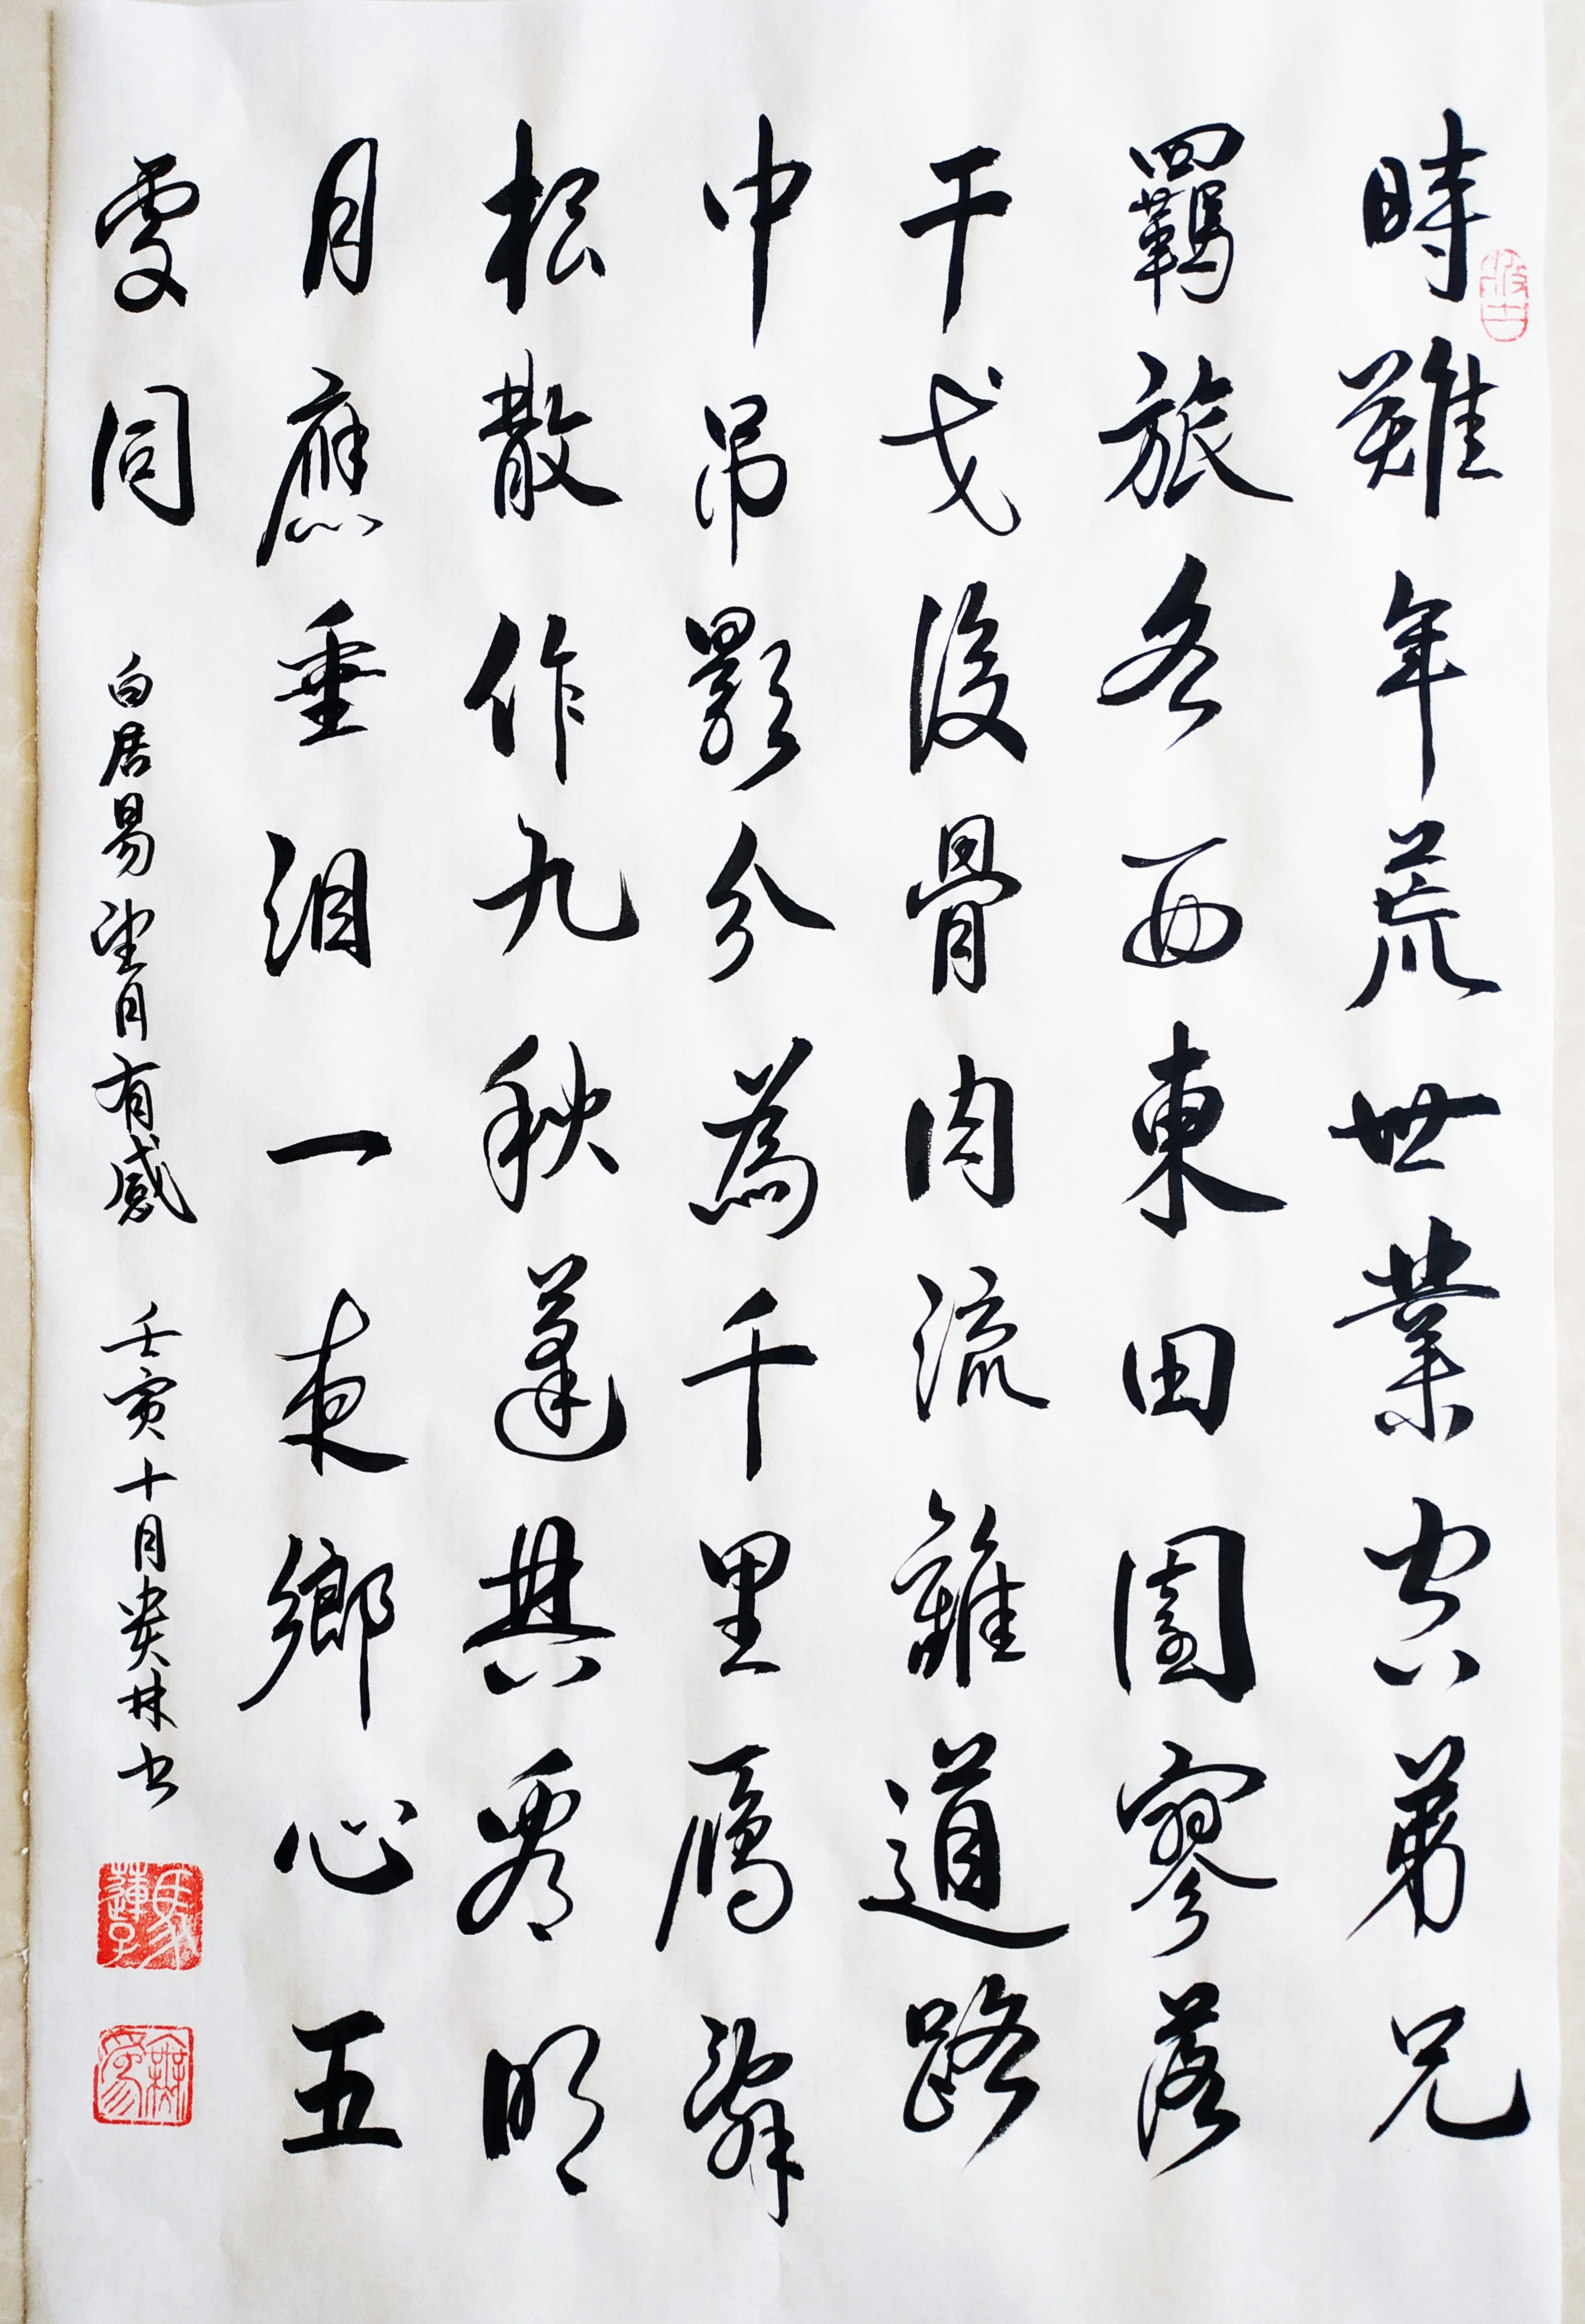 時難年荒世業空弟兄
羈旅各西東田園寥落
干戈後骨肉流離道路
中吊影分為千里鴈辭
根散作九秋蓬共看明
月應垂泪一夜鄉心五
處同
白居易望月有感 壬寅十月贵林书